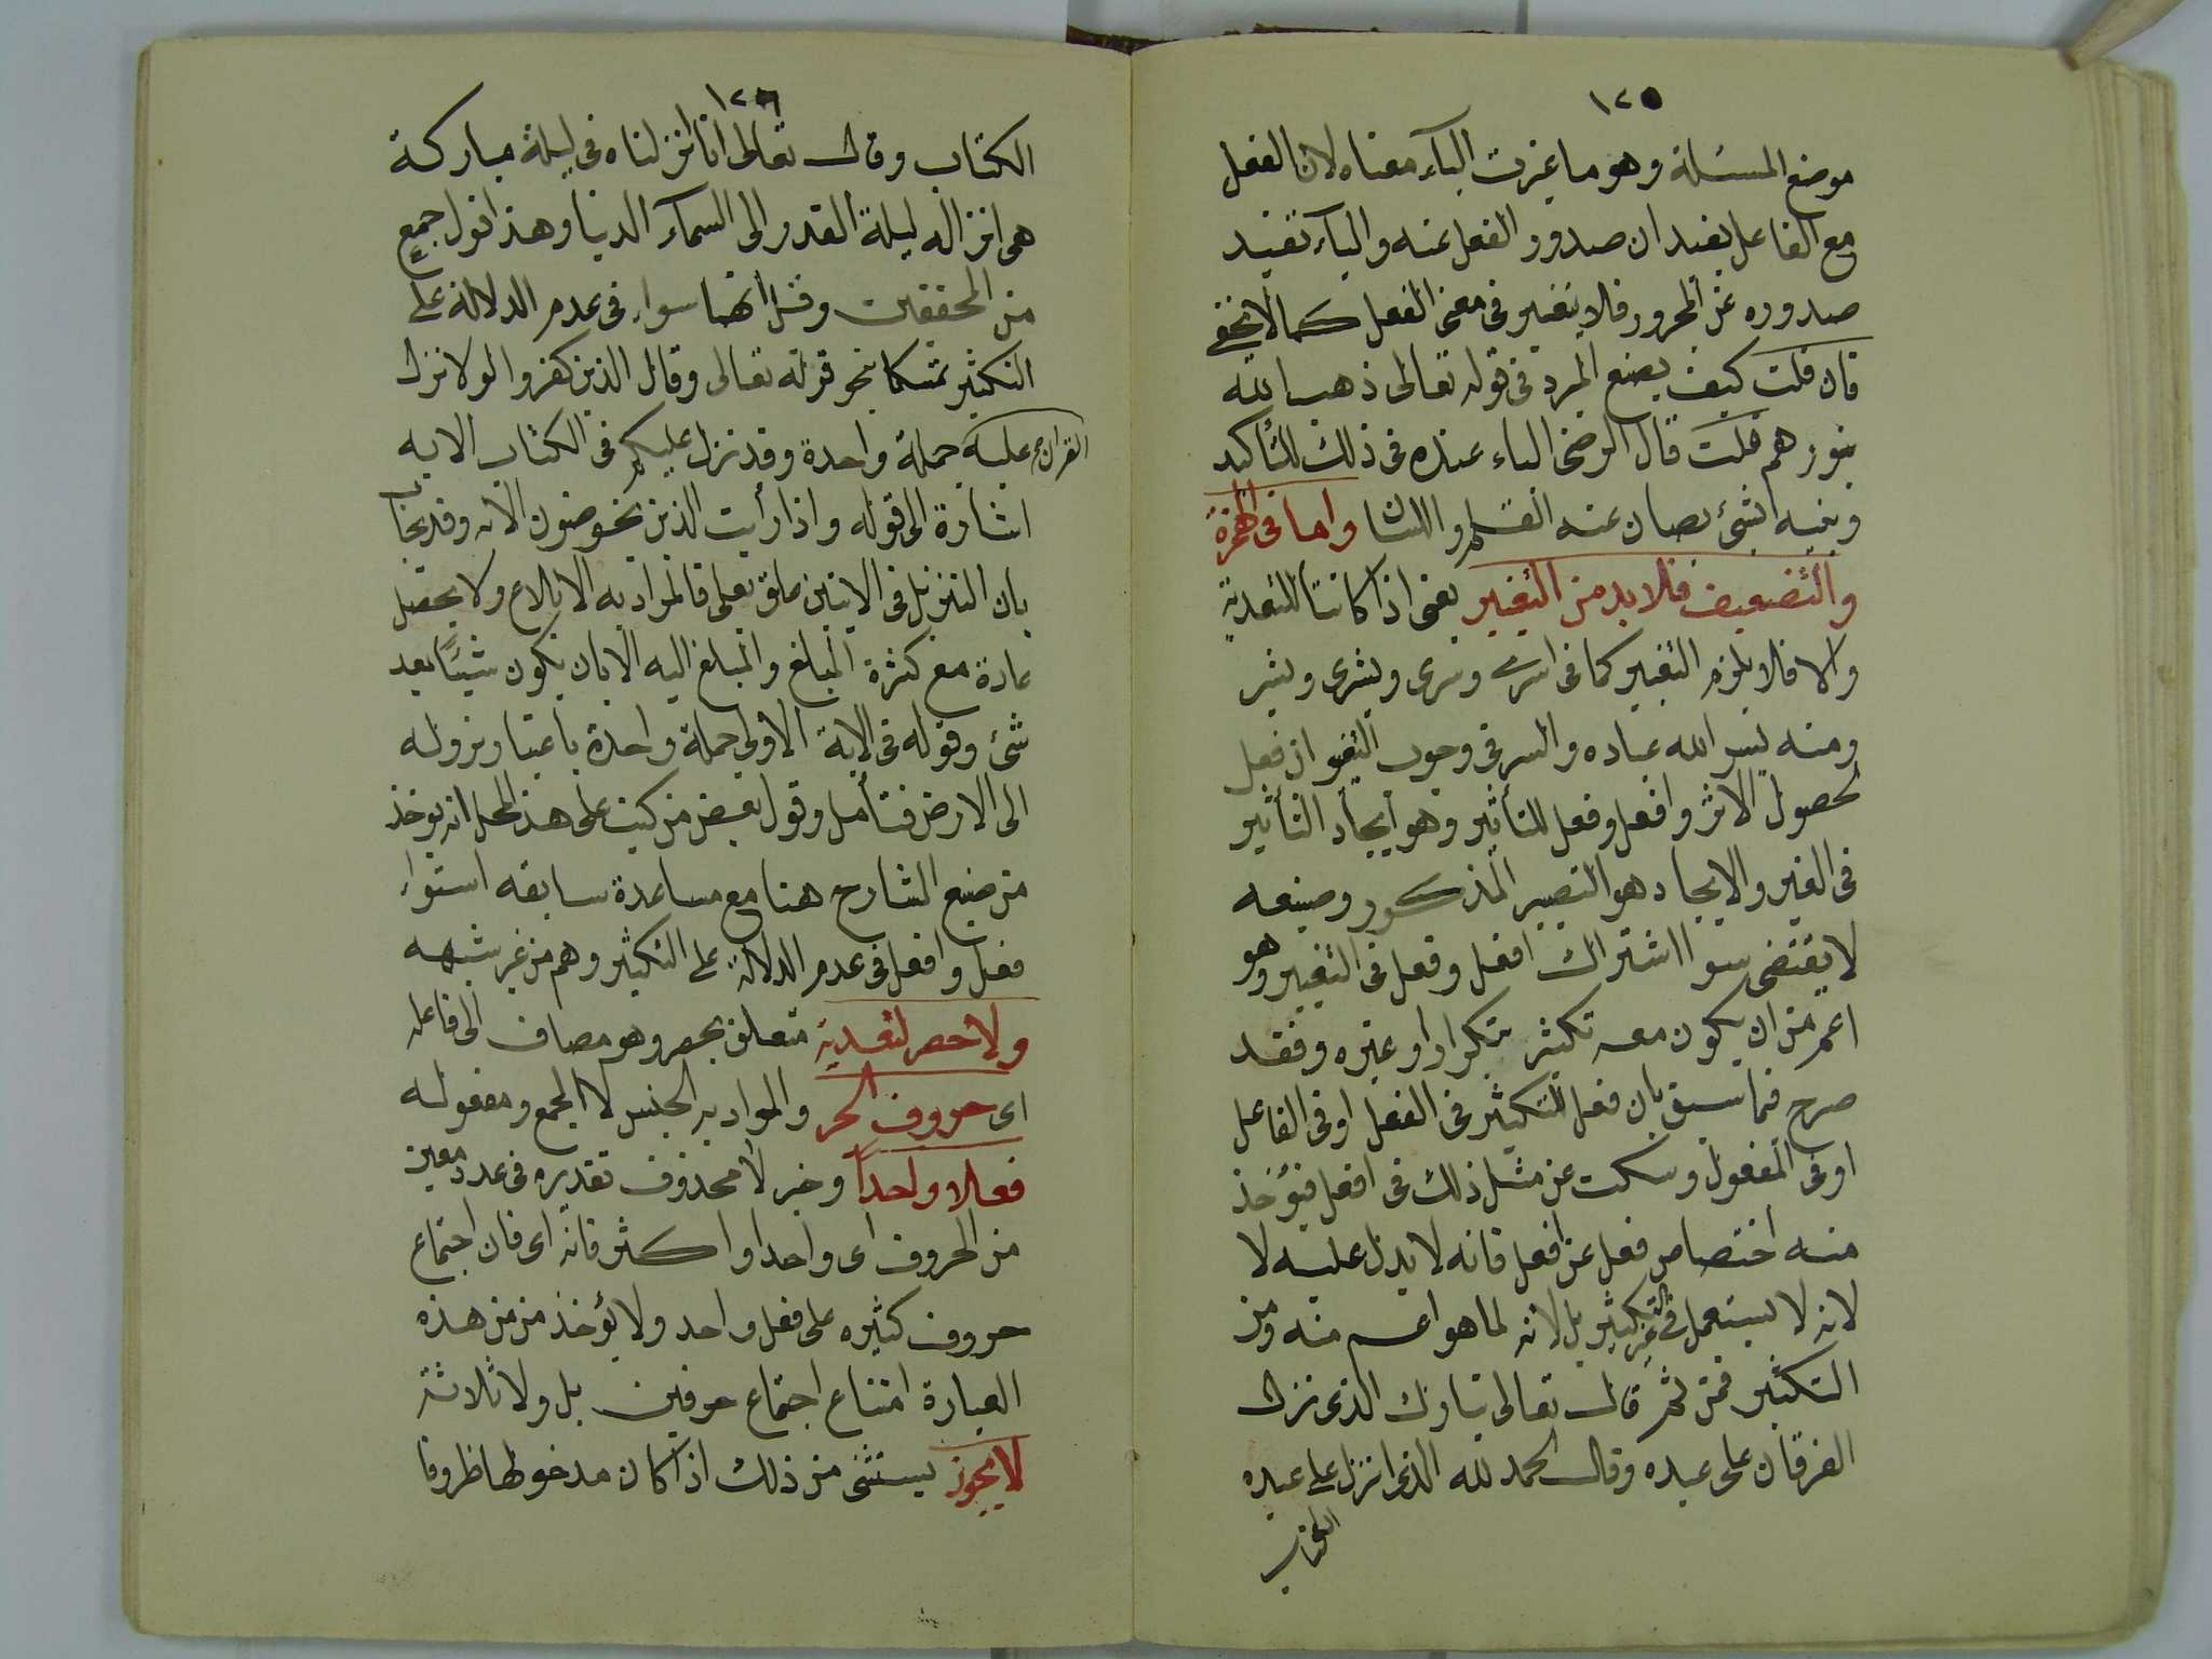 ١٢٥
موضع المسئلة وهو ما غيرت الباء معناه لان الفعل
مع الفاعل يفيد ان صدور الفعل عنه والباء تفيد
صدوره عن المجرور فلا تغيير فى معنى الفعل كما لا يخفى
فان قلت كيف يصنع المبرد فى قوله تعالى ذهب الله
بنورهم قلت قال الرضى الباء عنده فى ذلك للتأكيد
وفيه شئ يصان عنه القلم واللسان واما فى الهمزة
والتضعيف فلا بد من التغيير يعنى اذا كانتا للتعدية
والا فلا يلزم التغيير كما فى اسرى وسرى وبشرى وبشر
ومنه يبشر الله عباده والسر فى وجوب التغيير ان فعل
لحصول الاثر وافعل وفعل للتأثير وهو ايجاد التأثير
فى الغير والايجاد هو التصيير المذكور وصنيعه
لا يقتضى سوا اشتراك افعل وفعل فى التغيير وهو
اعم من ان يكون معه تكثير بتكرار او غيره وفقد
صرح فيما سبق بان فعل للتكثير فى الفعل او فى الفاعل
او فى المفعول وسكت عن مثل ذلك فى افعل فيؤخذ
منه اختصاص فعل عن افعل فانه لا يدل عليه لا
لانه لا يستعمل فى غير التكثير بل لانه لما هو اعم منه ومن
التكثير فمن ثم قال تعالى تبارك الذى نزل
الفرقان على عبده وقال الحمد لله الذى انزل على عبده
الكتاب
١٢٦
الكتاب وقال تعالى انا انزلناه فى ليلة مباركة
هى انزاله ليلة القدر الى السماء الدنيا وهذا قول جمع
من المحققين وقيل انهما سواء فى عدم الدلالة على
التكثير تمسكا بنحو قوله تعالى وقال الذين كفروا لولا نزل
القران عليه جملة واحدة وقد نزل عليكم فى الكتاب الايه
اشارة الى قوله واذا رأيت الذين يخوضون الايه وقد يجاب
بان التنزيل فى الايتين علق بعلى فالمراد به الابلاغ ولا يحصل
عادة مع كثرة المبلغ والمبلغ اليه الا بان يكون شيئا بعد
شئ وقوله فى الاية الاولى جملة واحدة باعتبار نزوله
الى الارض فتأمل وقول بعض من كتب على هذا المحل انه يوخذ
من صنيع الشارح هنا مع مساعدة سابقه استواء
فعل وافعل فى عدم الدلالة على التكثير وهم من غير شبهه
ولا حصر لتعدية متعلق بحصر وهو مضاف الى فاعله
اى حروف الجر والمراد به الجنس لا الجمع ومفعوله
فعلا واحدا وخبر لا محذوف تقديره فى عدد معين
من الحروف اى واحدا او اكثر فانه اى فان اجتماع
حروف كثيره على فعل واحد ولا يؤخذ من من هذه
العبارة امتناع اجتماع حرفين بل ولا ثلاثة
لا يجوز يستثنى من ذلك اذا كان مدخولها ظروفا